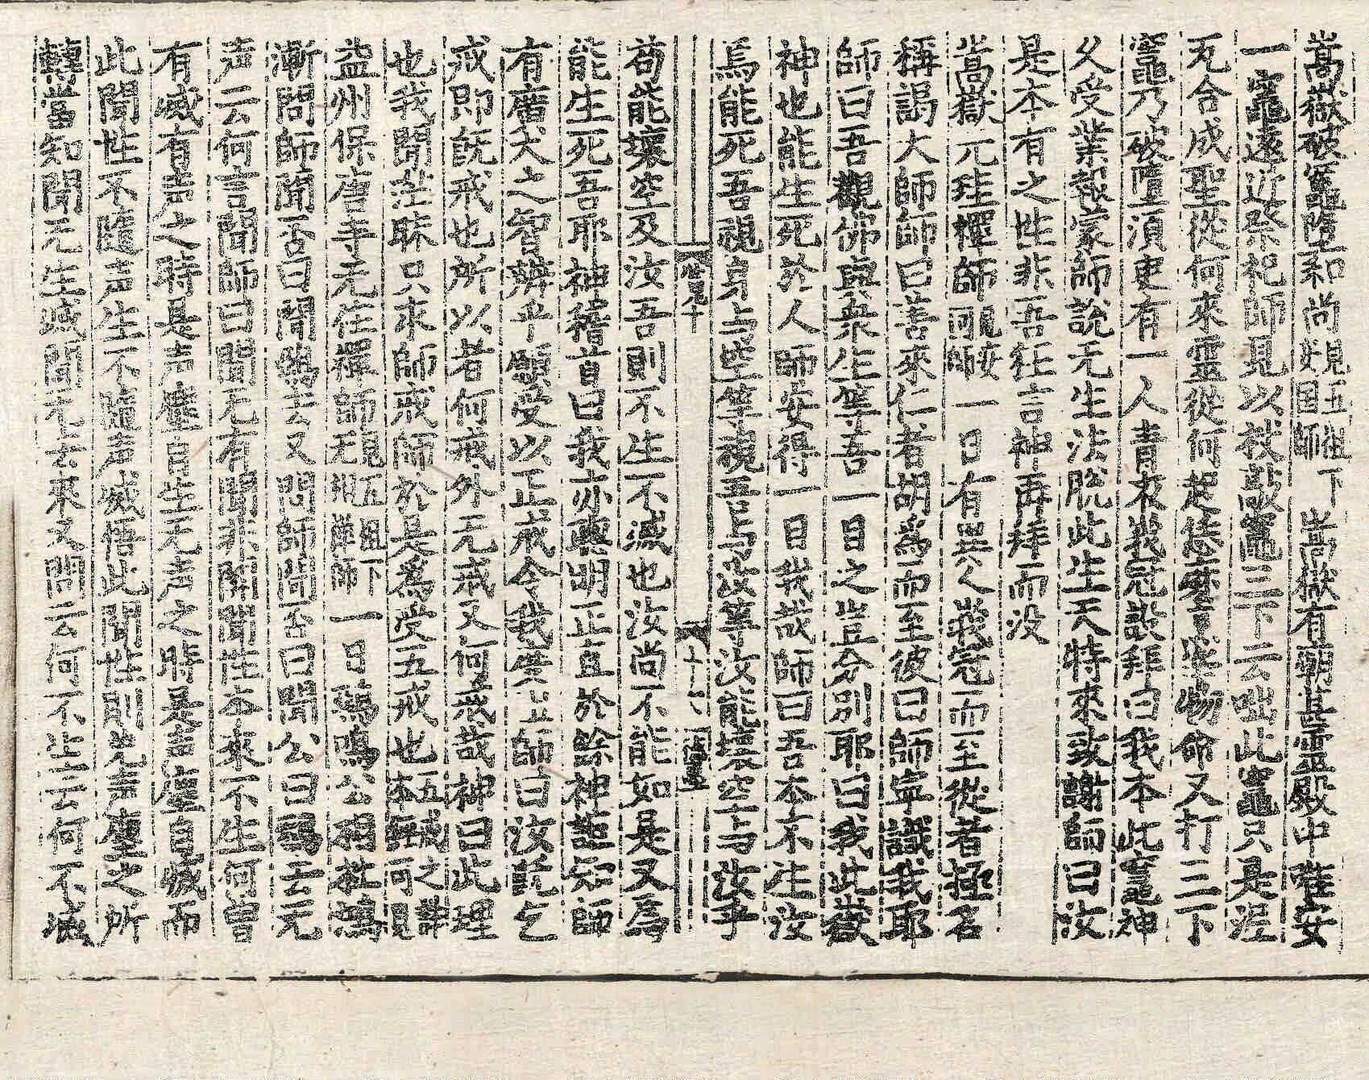 嵩嶽破竈墮和尚見五祖下安国師 嵩嶽有廟甚靈殿中唯安
一竈遠近祭祀師見以杖敲竈三下云咄此竈只是泥
瓦合成聖從何來靈從何起恁麼烹宰物命又打三下
竈乃破墮須臾有一人青衣峩冠設拜曰我本此竈神
久受業報蒙師說无生法脫此生天特來致謝師曰汝
是本有之性非吾狂言神再拜而没
嵩嶽元珪禪師嗣安師 一日有異人峩冠而至從者極名
稱謁大師師曰善來仁者胡爲而至彼曰師寧識我耶
師曰吾觀佛與衆生等吾一目之豈分別耶曰我此嶽
神也能生死於人師安得一目我哉師曰吾本不生汝
焉能死吾視身与空等視吾与汝等汝能壞空与汝乎
苟能壞空及汝吾則不生不滅也汝尚不能如是又爲
能生死吾耶神稽首曰我亦聰明正直於餘神詎知師
有廣大之智辨乎願受以正戒令我度世師曰汝旣乞
戒即旣戒也所以者何戒外无戒又何戒哉神曰此理
也我聞茫昧只求師戒師於是爲受五戒也五戒之詳本傳可見
益州保唐寺无住禪師見五祖下无相禪師 一日鵶鳴公相杜鴻
漸問師聞否曰聞鵶去又問師聞否曰聞公曰鵶去无
声云何言聞師曰聞无有聞非關聞性本來不生何曾
有滅有声之時是声塵自生无声之時是声塵自滅而
此聞性不隨声生不隨声滅悟此聞性則免声塵之所
轉當知聞无生滅聞无去來又問云何不生云何不滅